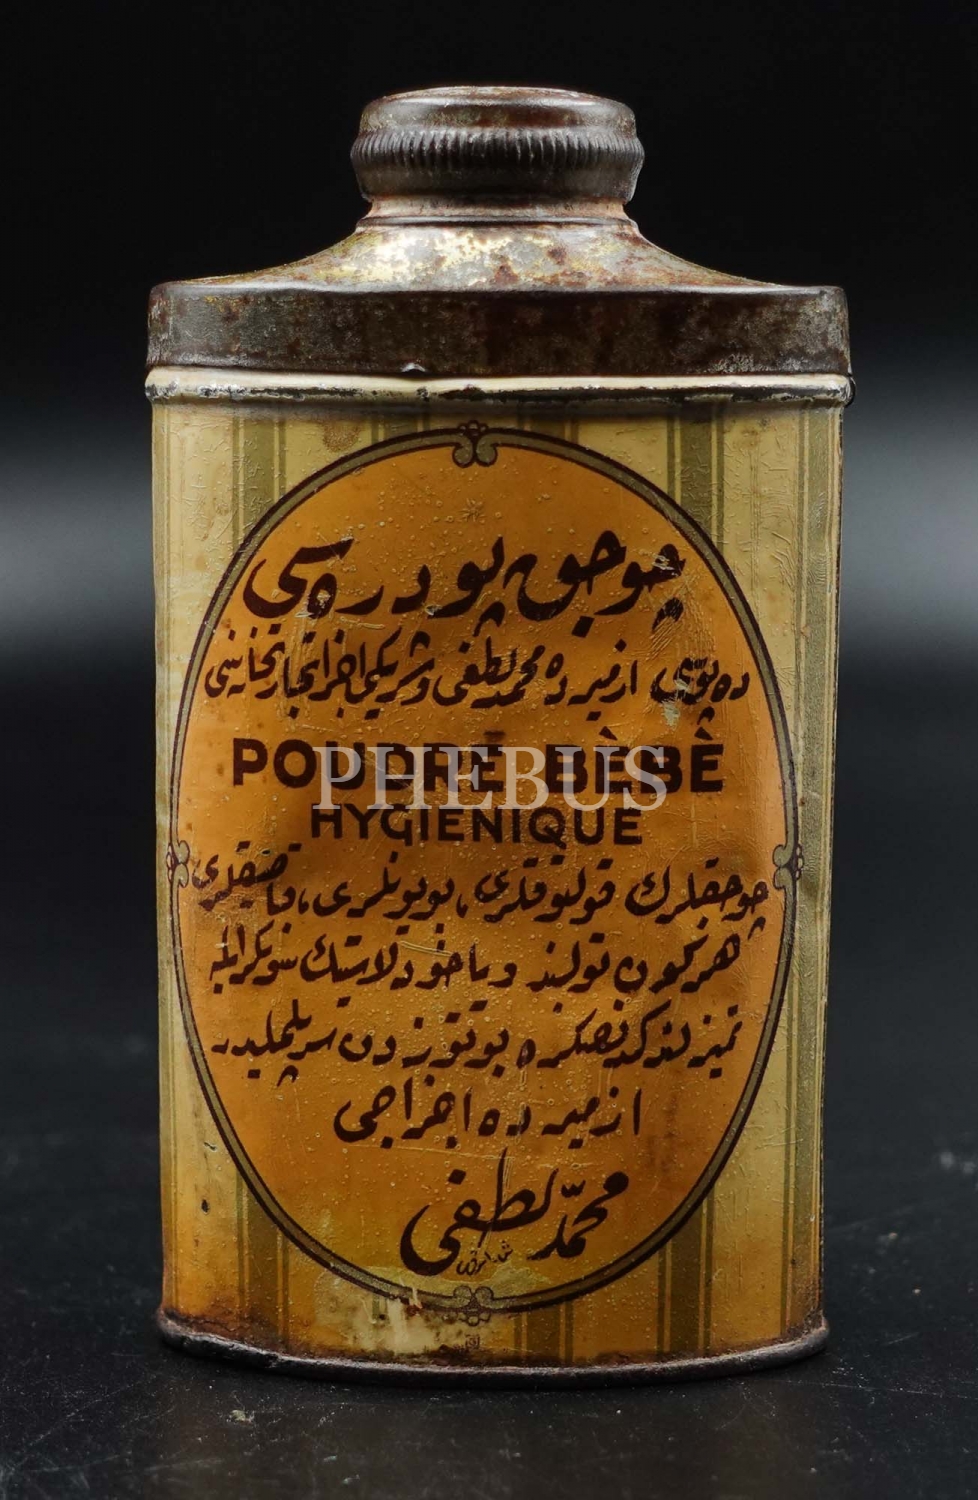 چوجق پودره سی
ده پوسی ازمیرده محمد لطفی وشریكی اجزا تجارتخانه سی
POUDRE BÈBÊ
HYGIENIQUE
چوجقلرك قولتوقلری، بویونلری، قاصیقلری
هركون تولبند ویاخود لاستیك سونكرایله
تمیزلندكدنصكره بوتوزدن سرپلملیدر
ازمیرده اجزاجی
محمد لطفی
PHEBUS